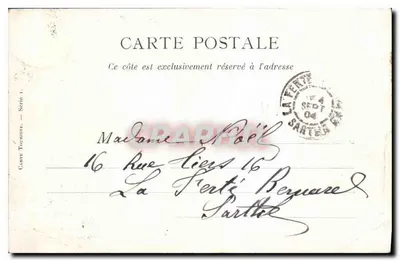 CARTE POSTALE
Ce côté est exclusivement réservé à l'adresse
LA FERTÉ
SEPT
04
SARTHE
CARTE TOURISTE. — SÉRIE 1.
Madame Noël
16 Rue Tiers 16
La Ferté Bernard
Sarthe